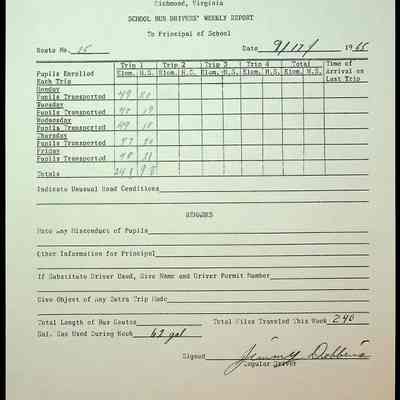 Richmond, Virginia
SCHOOL BUS DRIVERS' WEEKLY REPORT
To Principal of School
Route No. 15 Date 9/17/ 1965
Trip 1 Trip 2 Trip 3 Trip 4 Total Time of
Pupils Enrolled Elem. H.S. Elem. H.S. Elem. H.S. Elem. H.S. Elem. H.S. Arrival on
Each Trip Last Trip
Monday
Pupils Transported 49 20
Tuesday
Pupils Transported 19
Wednesday
Pupils Transported 49 18
Thursday
Pupils Transported 20
Friday
Pupils Transported 48 21
Totals 98
Indicate Unusual Road Conditions
REMARKS
Note Any Misconduct of Pupils
Other Information for Principal
If Substitute Driver Used, Give Name and Driver Permit Number
Give Object of Any Extra Trip Made
Total Length of Bus Routes Total Miles Traveled This Week 240
Gal. Gas Used During Week 62 gal
Signed Jimmy Dobbins
Regular Driver